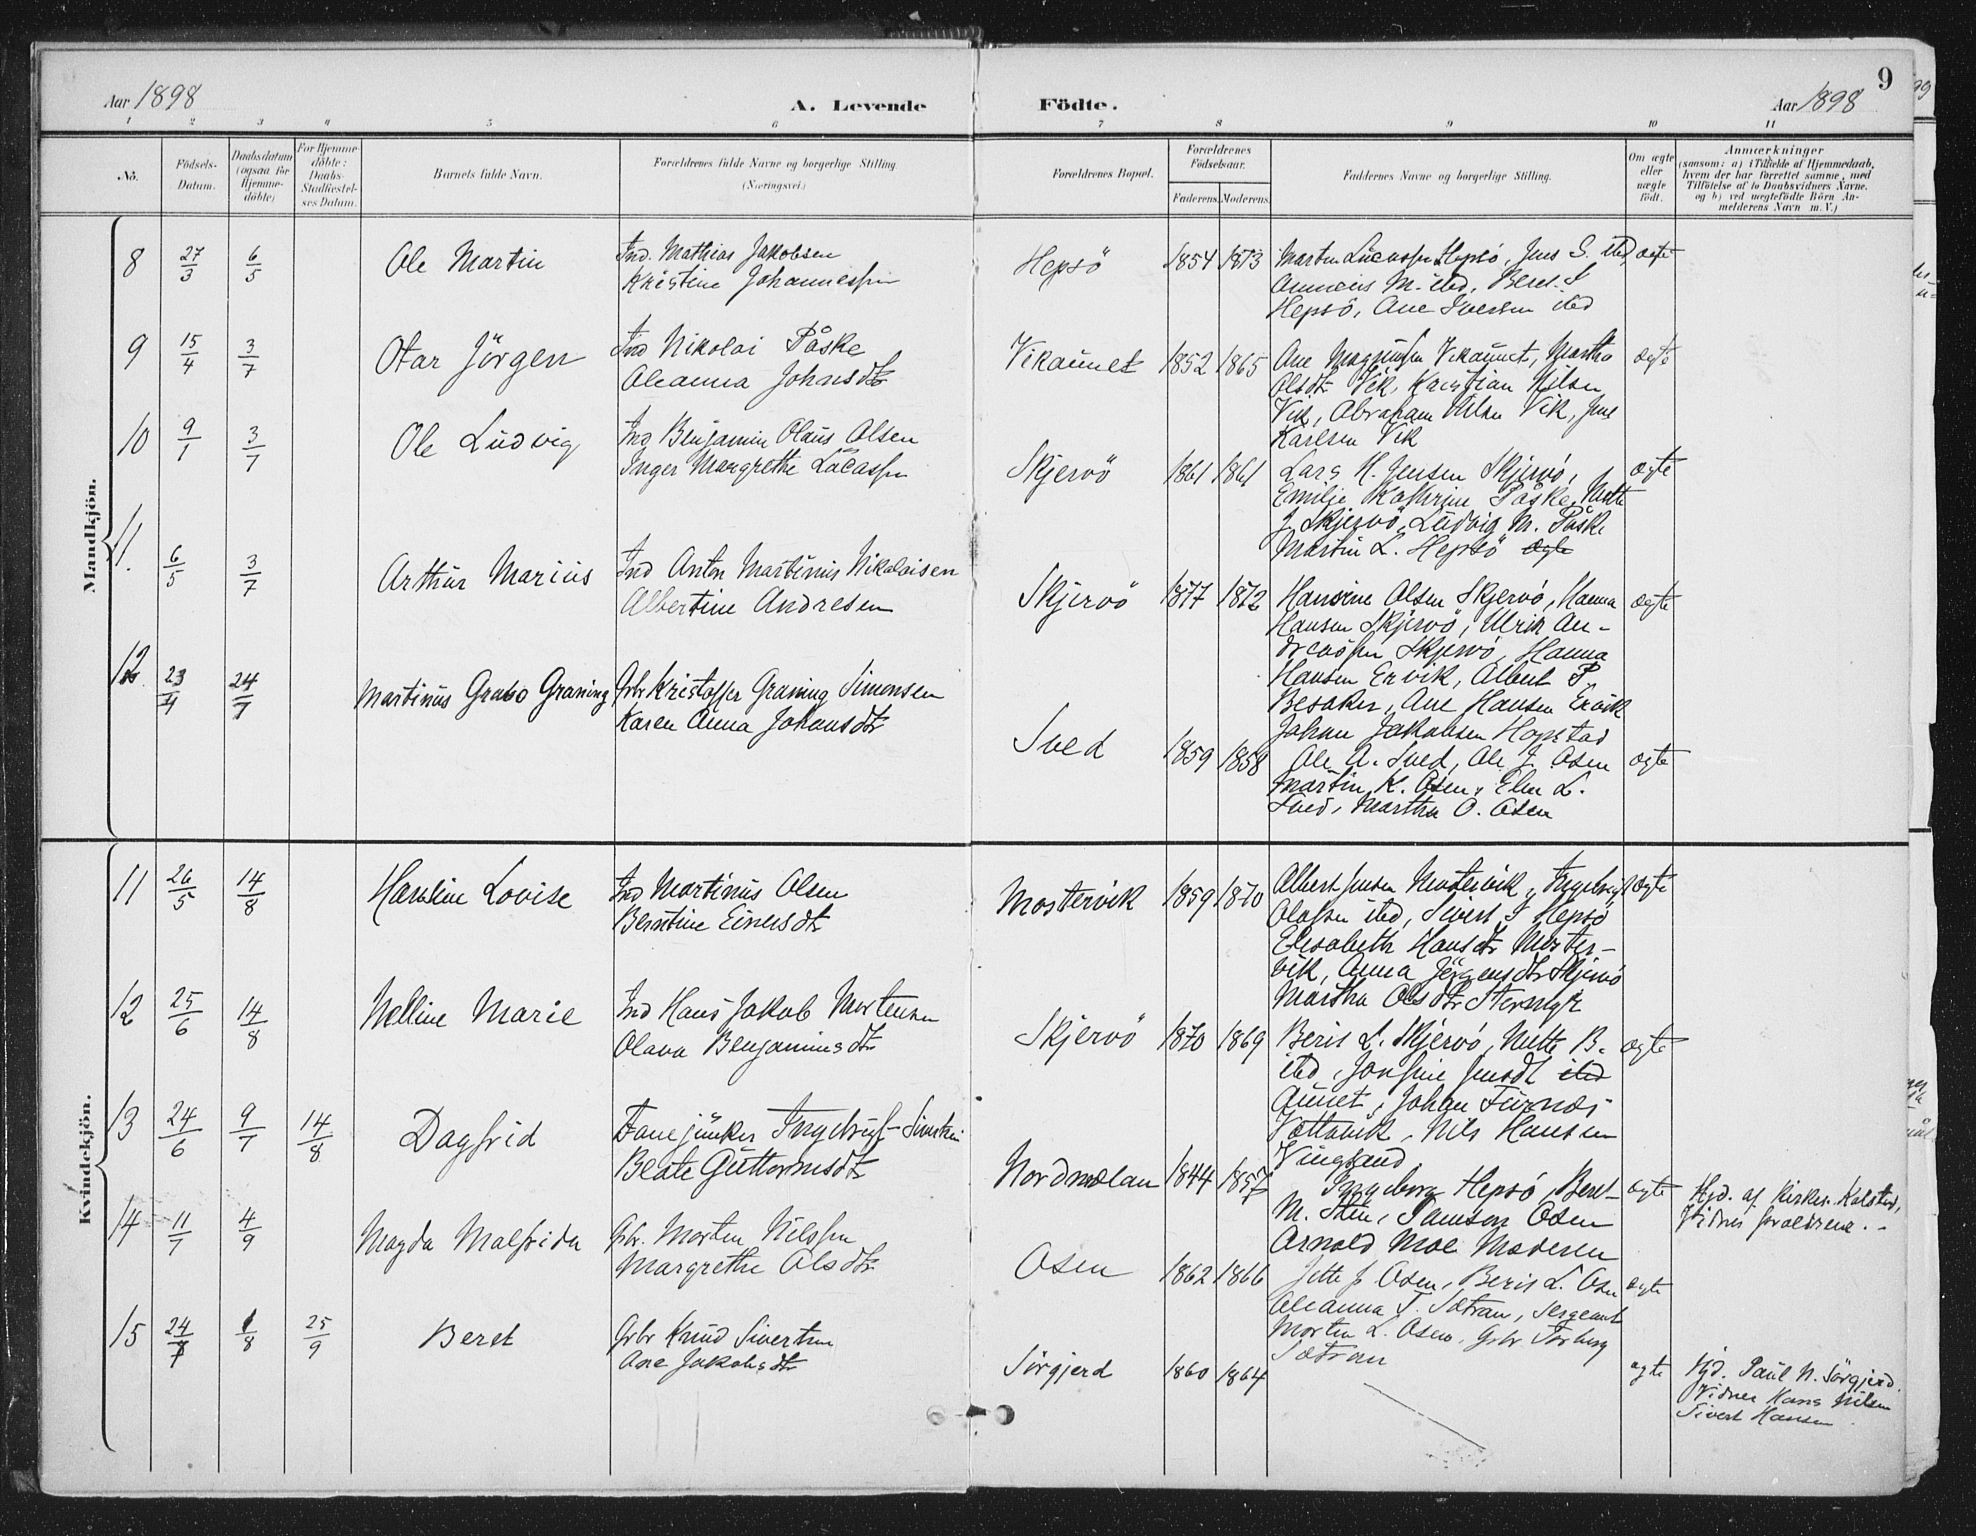 Aar 1898
A. Levende
Födte.
Aar 1898
9
1 2 3 4 5 6 7 8 9 10 11
No.
Födsels-
Datum.
Daabsdatum
(ogsaa för
Hjemme-
döbte)
For Hjemme-
döbte:
Daabs-
Stadfæstel-
ses Datum.
Barnets fulde Navn.
Forældrenes fulde Navne og borgerlige Stilling.
(Næringsvei.)
Forældrenes Bopæl.
Forældrenes
Födselsaar.
Faderens. Moderens.
Faddernes Navne og borgerlige Stilling.
Om ægte
eller
uægte
födt.
Anmærkninger
(saasom: a) i Tilfælde af Hjemmedaab,
hvem der har forrettet samme, med
Tilföielse af to Daabsvidners Navne,
og b) ved uægtefödte Börn An-
melderens Navn m. V.)
Mandkjön.
8 27/3 6/5 Ole Martin
Ind. Mathias Jakobsen
Kristine Johannessen
Hepsö 1854 1873
Martin Lucassen Hepsö, Jens S. ibid
M. ibid, Beret S
Hepsö, Ane Iversen ibd
ægte
9 15/4 3/7 Otar Jörgen
Ind Nikolai Påske
Oleanna Johnsdtr
Vikaunet 1852 1865
Ane Vikaunet, Martha
Olsdtr Vik, Kristian Nilsen
Vik, Abraham Nilsen Vik, Jens
Karlsen Vik
ægte
10 9/1 3/7 Ole Ludvig
Ind Benjamin Olaus Olsen
Inger Margrethe Lucassen
Skjervö 1861 1861
Lars H. Jensen Skjervö,
Emilje Kathrine Påske, Nette
J. Skjervö, Ludvig M. Påske
Martin L. Hepsö ægte
ægte
11. 6/5 3/7 Arthur Marius
Ind Anton Martinus Nikolaisen
Albertine Andresen
Skjervö 1877 1872
Hansine Olsen Skjervö, Hanna
Hansen Skjervö, Ulrik An-
dreassen Skjervö, Hanna
Hansen Ervik, Albert P.
Besaker, Ane Hansen Ervik
ægte
12 23/4 24/7 Martinus Grabo Graning
Gbr Kristoffer Graning Simonsen
Karen Anna Johansdtr
Sved 1859 1858
Johan Jakobsen Hopstad
Ole A. Sved, Ole J. Osen
Martin K. Osen, Elen L.
Sved, Martha O. Osen
ægte
Kvindekjön.
11 26/5 14/8 Hansine Lovise
Ind Martinus Olsen
Berntine Einersdtr
Mostervik 1859 1870
Albert Jensen Mostervik, Ingebrigt
Olassen ibd, Sivert J Hepsö
Elisabeth Hansdtr Moster-
vik, Anna Jörgensdtr Skjervö
Martha Olsdtr Stormyr
ægte
12 25/6 14/8 Nelline Marie
Ind Hans Jakob Mortensen
Olava Benjaminsdtr
Skjervö 1870 1869
Beris L. Skjervö, Nette B.
ibd, Jensdt ibd
Aunet, Johan Furnes
Vingsand, Nils Hansen
Vingsand
ægte
13 24/6 9/7 14/8 Dagfrid
Fanejunker Ingebrigt
Beate Guttormsdtr
Nordmelan 1844 1857
Ingeborg Hepsö, Beret
M. Sten, Samson Osen
Arnold Moe Madesen
ægte
Hjd. af Kirkes. Kolstad,
Vidner foraldrene.
14 11/7 4/9 Magda Malfrida
Gbr. Morten Nilssen
Margrethe Olsdtr
Osen 1862 1866
Jette J Osen, Beris L. Osen
Oleanna T. Sætran, Sergeant
Morten L. Osen, Gbr Torberg
Sætran
ægte
15 24/7 1/8 25/9 Beret
Gbr Knud Sivertsen
Ane Jakobsdtr
Sörgjerd 1860 1864
ægte
Hjd. Paul N. Sörgjerd.
Vidner Hans Nilsen
Sivert Hansen